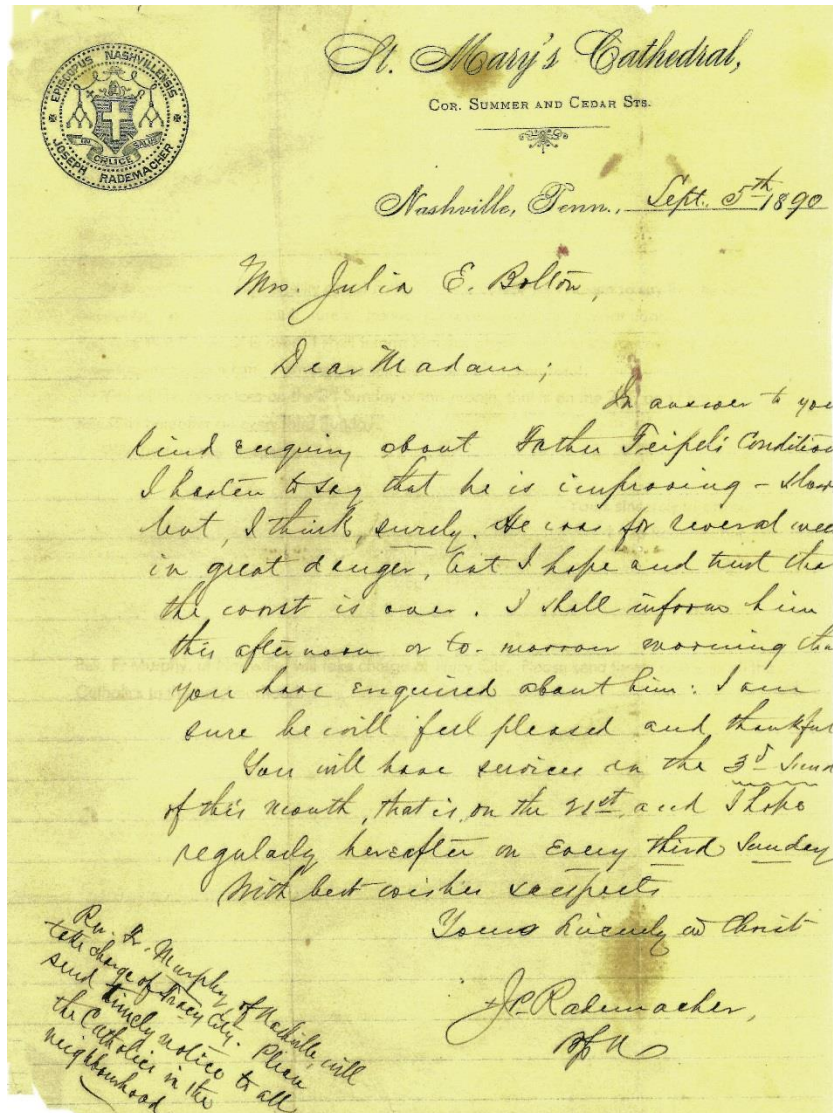 EPISCOPUS NASHVILLENSIS
IN CRUCE SALUS
JOSEPH RADEMACHER
St. Mary's Cathedral,
COR. SUMMER AND CEDAR STS.
Nashville, Tenn., Sept. 5th 1890
Mrs. Julia E. Bolton,
Dear Madam;
In answer to you
kind enquiry about Father Teipel's Condition
I hasten to say that he is improving - slow
but, I think, surely. He was for several wee
in great danger, but I hope and trust tha
the worst is over. I shall inform him
this afternoon or to-morrow morning tha
you have enquired about him: I am
sure he will feel pleased and thankful
You will have services on the 3d Sund
of this month, that is, on the 21st, and I hope
regularly hereafter on Every third Sunday
With best wishes & respects
Yours Sincerely in Christ
Rademacher,
Rev. Fr. Murphy of Nashville, will
take charge of Tracy City. Please
send timely notice to all
the Catholics in the
neighbourhood